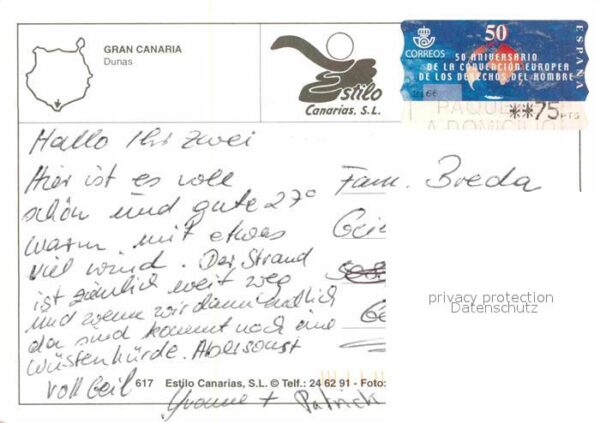 GRAN CANARIA
Dunas
Estilo
Canarias, S.L.
50
CORREOS
ESPAÑA
50 ANIVERSARIO
DE LA CONVENCION EUROPEA
DE LOS DERECHOS DEL HOMBRE
PAQUE
A DOMICILIO
**75 PTS
Hallo Ihr zwei
Hier ist es voll
schön und gute 27°
warm mit etwas
viel wind. Der Strand
ist ziemlich weit weg
und wenn wir dann endlich
da sind kommt noch eine
Wüstenhürde. Aber sonst
voll Geil
Yvonne + Patrick
Fam. Breda
privacy protection
Datenschutz
617 Estilo Canarias, S.L. © Telf.: 24 62 91 - Foto: